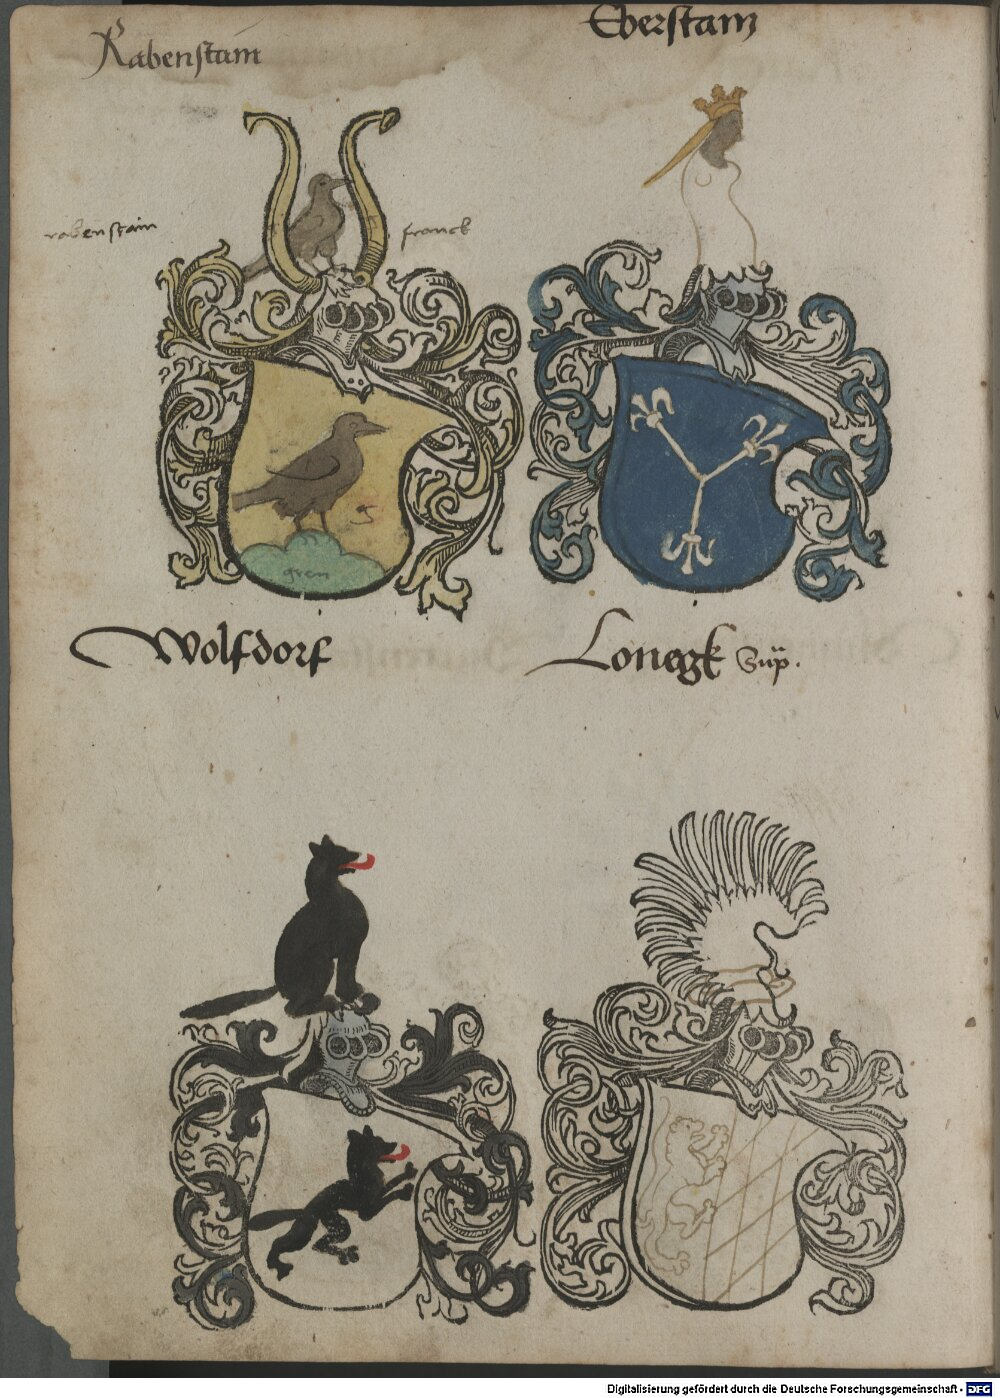 Rabenstain
Eberstain
rabenstain
franck
gren
Wolfdorf
Lonegk Süp.
Digitalisierung gefördert durch die Deutsche Forschungsgemeinschaft - DFG